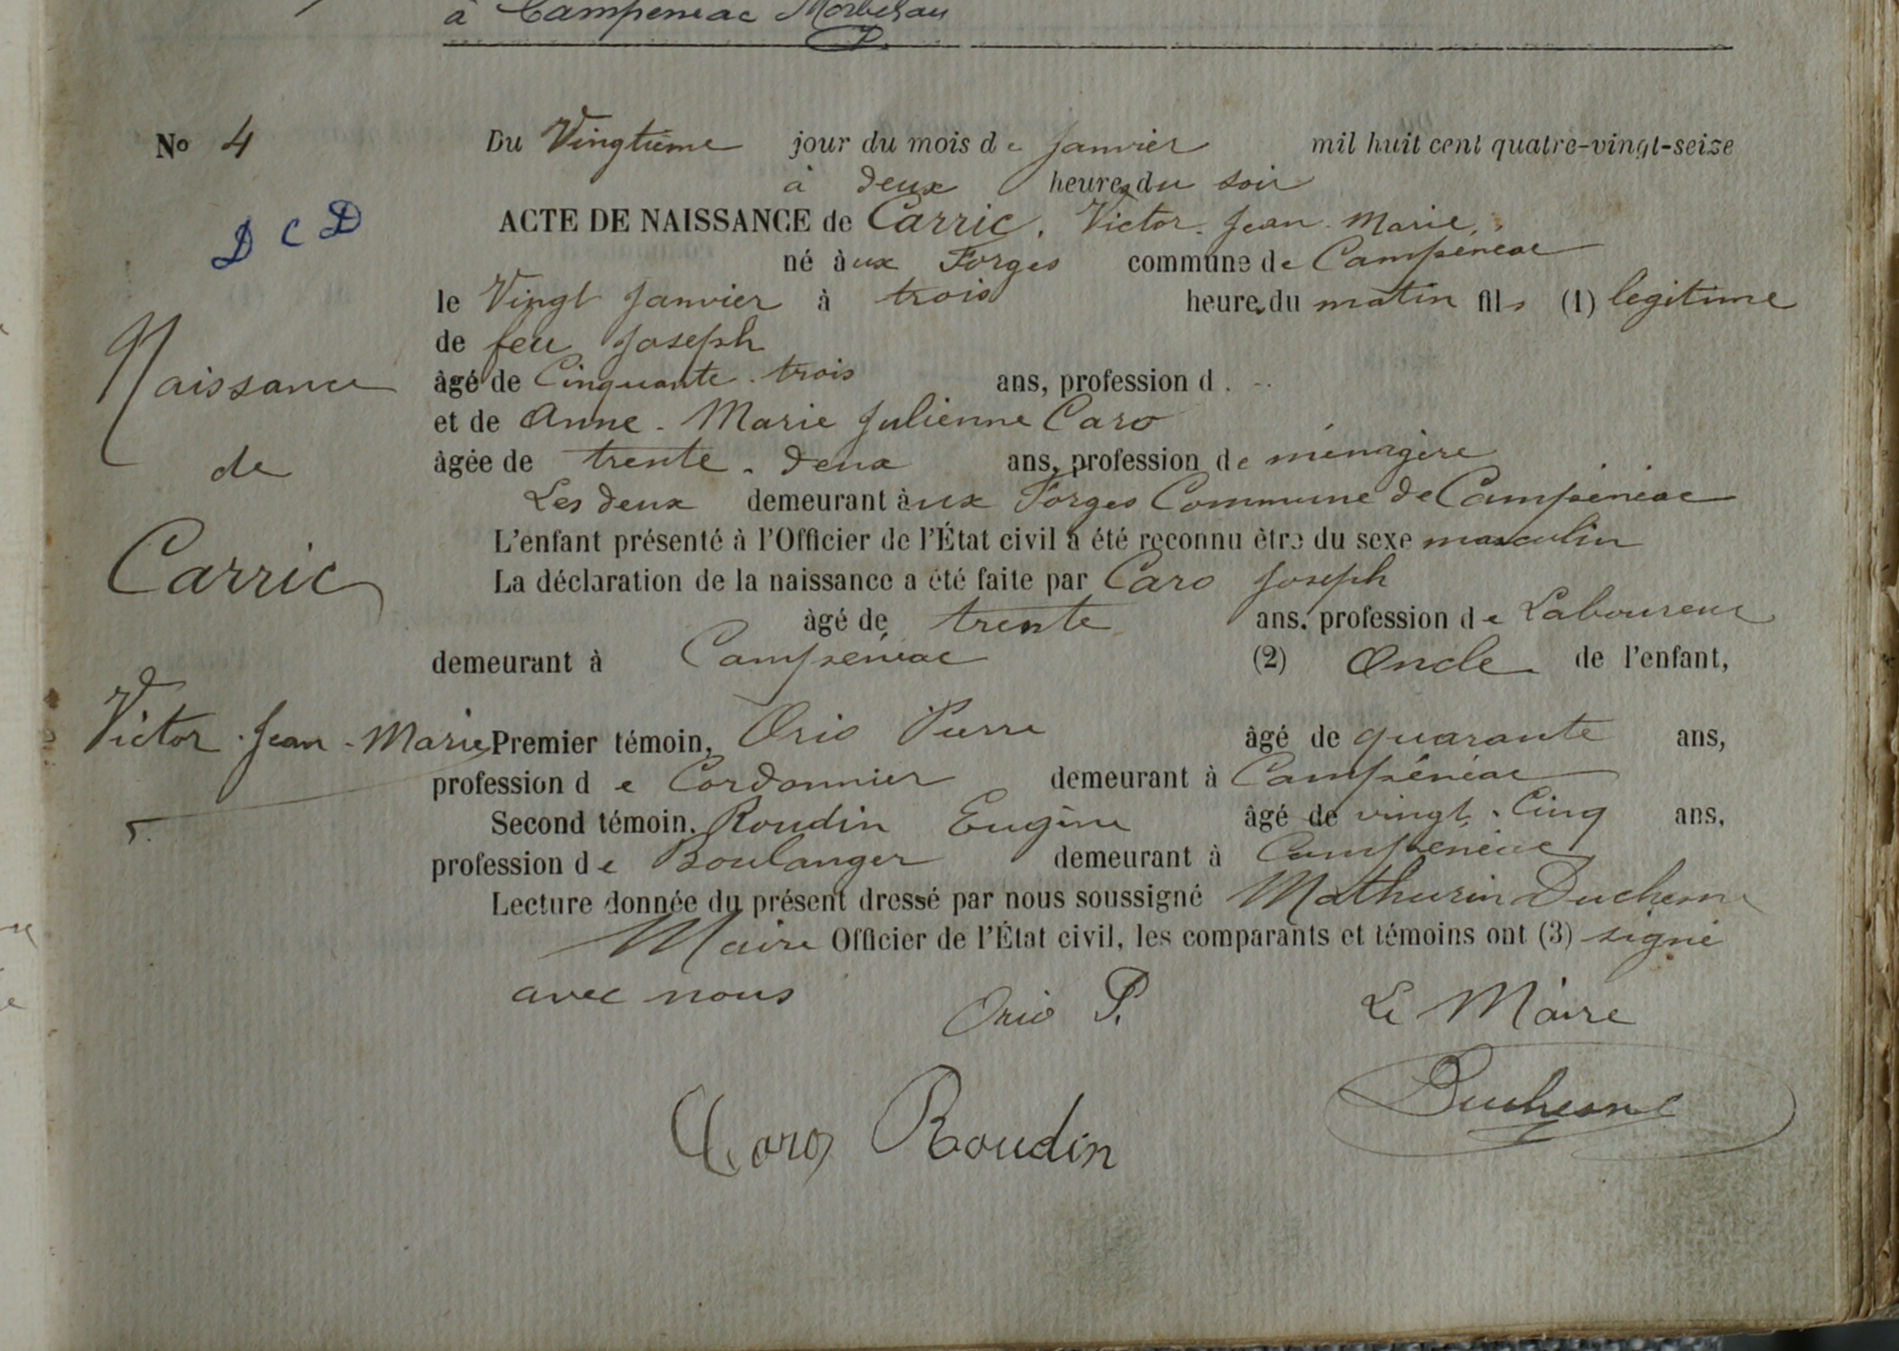 à Campeneac Morbihan
No 4
Du Vingtième jour du mois de Janvier mil huit cent quatre-vingt-seize
à deux heures du soir
D C D
ACTE DE NAISSANCE de Carric. Victor. Jean. Marie.
né àux Forges commune de Campeneac
le Vingt Janvier à trois heures du matin fils (1) legitime
de feu Joseph
âgé de Cinquante-trois ans, profession d . - .
et de Anne-Marie Julienne Caro
âgée de trente-deux ans, profession de ménagère
Les deux demeurant àux Forges Commune de Campénéac
L'enfant présenté à l'Officier de l'État civil a été reconnu être du sexe masculin
La déclaration de la naissance a été faite par Caro Joseph
âgé de trente ans, profession de Laboureur
demeurant à Campénéac (2) Oncle de l'enfant,
Naissance
de
Carric
Victor-Jean-Marie
Premier témoin, Orio Pierre âgé de quarante ans,
profession de Cordonnier demeurant à Campénéac
Second témoin, Roudin Eugène âgé de vingt-Cinq ans,
profession de Boulanger demeurant à Campeneac
Lecture donnée du présent dressé par nous soussigné Mathurin Duchesne
Maire Officier de l'État civil, les comparants et témoins ont (3) signé
avec nous
Orio P. Le Maire
Caro Roudin Duchesne